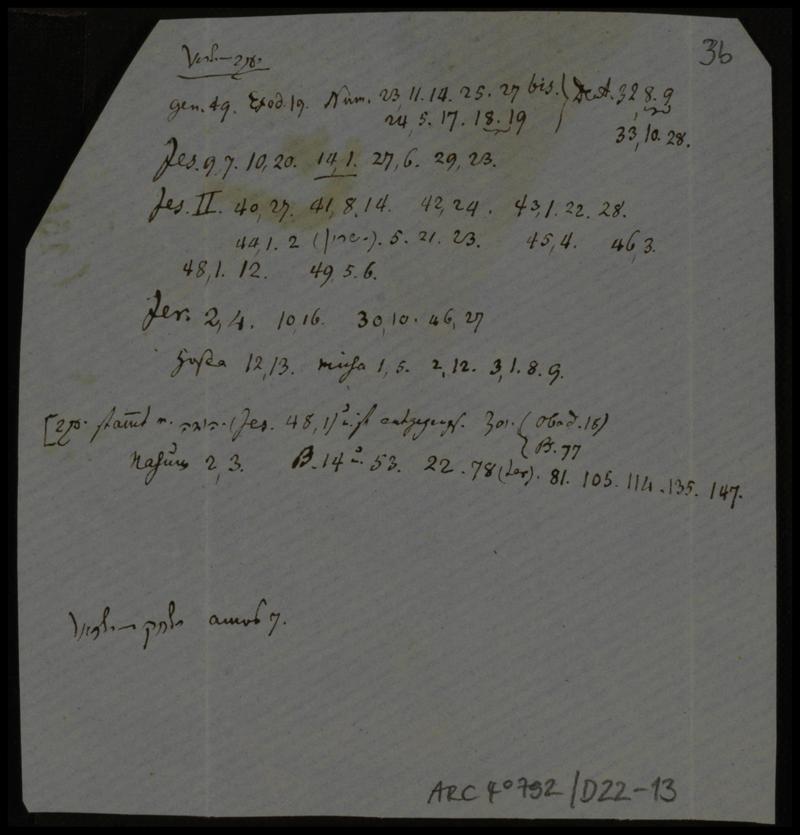 36
יעקב—ישראל
Gen. 49. Exod. 19. Num. 23, 11. 14. 25. 27 bis. } Deut. 32 8. 9
24, 5. 17. 18. 19 33, 10. 28.
Jes. 9, 7. 10, 20. 14, 1. 27, 6. 29, 23.
Jes. II. 40, 27. 41, 8. 14. 42, 24. 43, 1. 22. 28.
44, 1. 2 (ישרון). 5. 21. 23. 45, 4. 46, 3.
48, 1. 12. 49, 5. 6.
Jer. 2, 4. 10, 16. 30, 10. 46, 27
Hosea 12, 13. Micha 1, 5. 2, 12. 3, 1. 8. 9.
[יעקב stammt v. יהודה (Jes. 48, 1) u. ist { Obad. 18)
Ps. 77
Nahum 2, 3. Ps. 14 u. 53. 22. 78 (ter). 81. 105. 114. 135. 147.
ישחק—ישראל Amos 7.
ARC 4° 792 / D22-13